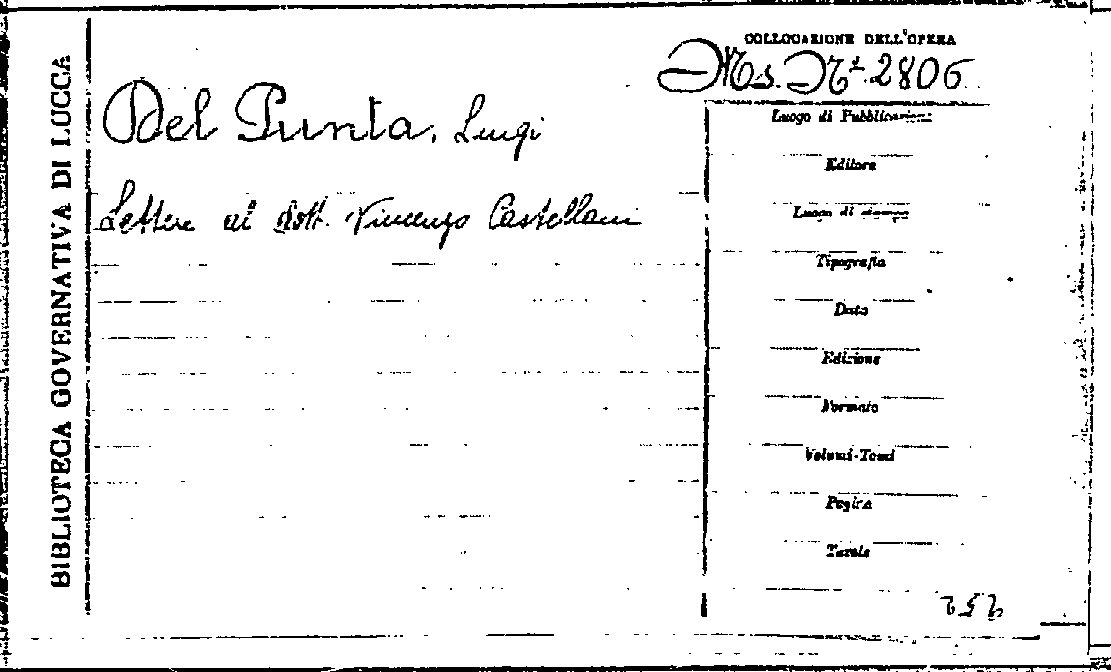 BIBLIOTECA GOVERNATIVA DI LUCCA
COLLOCAZIONE DELL'OPERA
Ms. N.º 2806
Del Punta, Luigi
Lettere al dott. Vincenzo Castellani
Luogo di Pubblicazione
Editore
Luogo di stampa
Tipografia
Data
Edizione
Formato
Volumi-Tomi
Pagine
Tavole